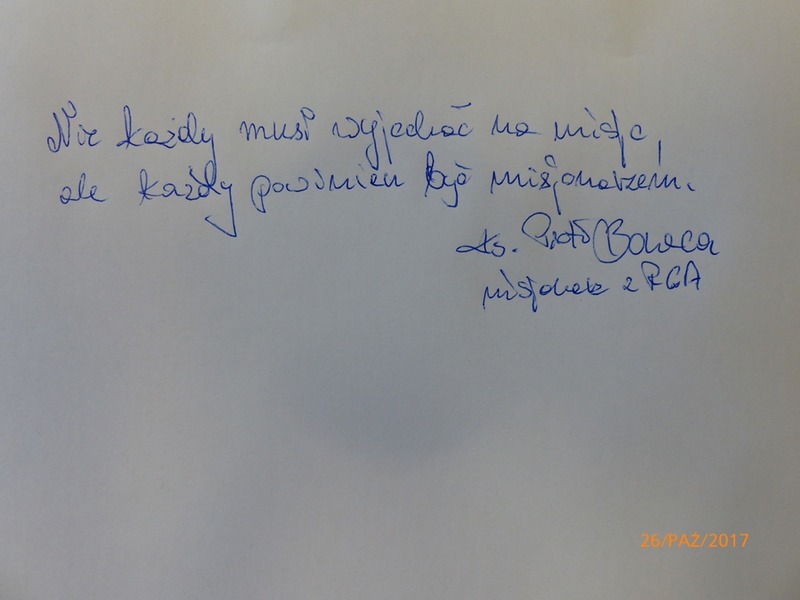 Nie każdy musi wyjechać na misje,
ale każdy powinien być misjonarzem.
ks. Piotr
misjonarz z RCA
26/PAŹ/2017